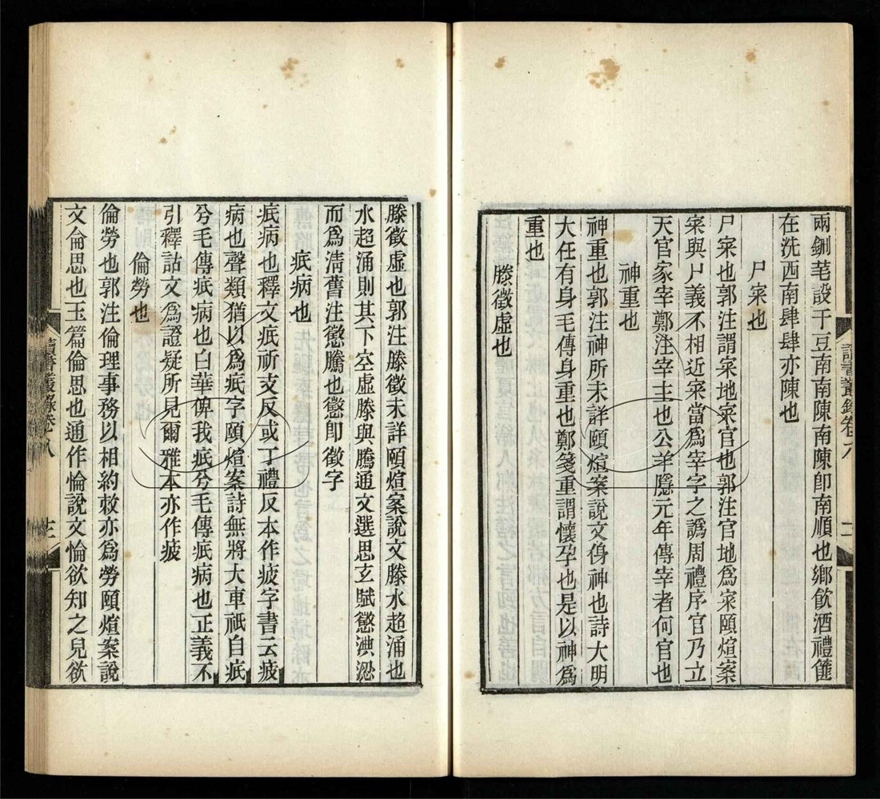 兩鉶芼設于豆南南陳南陳卽南順也鄉飮酒禮篚
在洗西南肆肆亦陳也
尸寀也
尸寀也郭注謂寀地寀官也郭注官地爲寀頤煊案
寀與尸義不相近寀當爲宰字之譌周禮序官乃立
天官冢宰鄭注宰主也公羊隱元年傳宰者何官也
神重也
神重也郭注神所未詳頤煊案說文㑗神也詩大明
大任有身毛傳身重也鄭箋重謂懷孕也是以神爲
重也
滕徵虛也
滕徵虛也郭注滕徵未詳頤煊案說文滕水超涌也
水超涌則其下空虛滕與騰通文選思玄賦懲淟涊
而爲淸舊注懲騰也懲卽徵字
疧病也
疧病也釋文疧祈支反或丁禮反本作疲字書云疲
病也聲類猶以爲疧字頤煊案詩無將大車祇自疧
兮毛傳疧病也白華俾我疧兮毛傳疧病也正義不
引釋詁文爲證疑所見爾雅本亦作疲
倫勞也
倫勞也郭注倫理事務以相約敕亦爲勞頤煊案說
文侖思也玉篇倫思也通作惀說文惀欲知之皃欲
讀書叢錄卷八